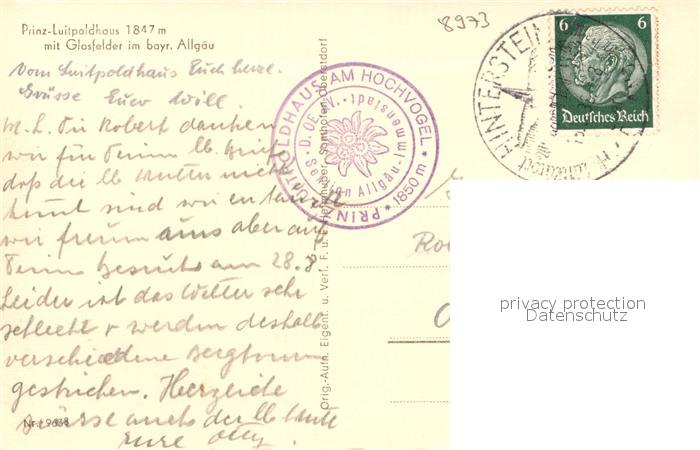 Prinz-Luitpoldhaus 1847 m
mit Glasfelder im bayr. Allgäu
8973
Vom Luitpoldhaus Euch herzl.
Grüsse Euer Will.
M. L. Dir Robert danken
wir für Deinen lb. Brief
daß die lb Tanten nicht
kommt sind wir
wir freuen uns aber auf
Deinen Besuch am 28.8
Leider ist das Wetter sehr
schlecht & werden deshalb
verschiedene Bergtouren
gestrichen. Herzliche
Grüsse auch der lb Tante
Eure Otty
Nr. 9638
PRINZ LUITPOLDHAUS AM HOCHVOGEL
* 1850 m *
D. OE. A. V.
Sektion Allgäu-Immenstadt
Orig.-Aufn. Eigent. u. Verf. F. u. E. Heimhuber, Sonthofen-Oberstdorf
HINTERSTEIN
6 6
Deutsches Reich
privacy protection
Datenschutz